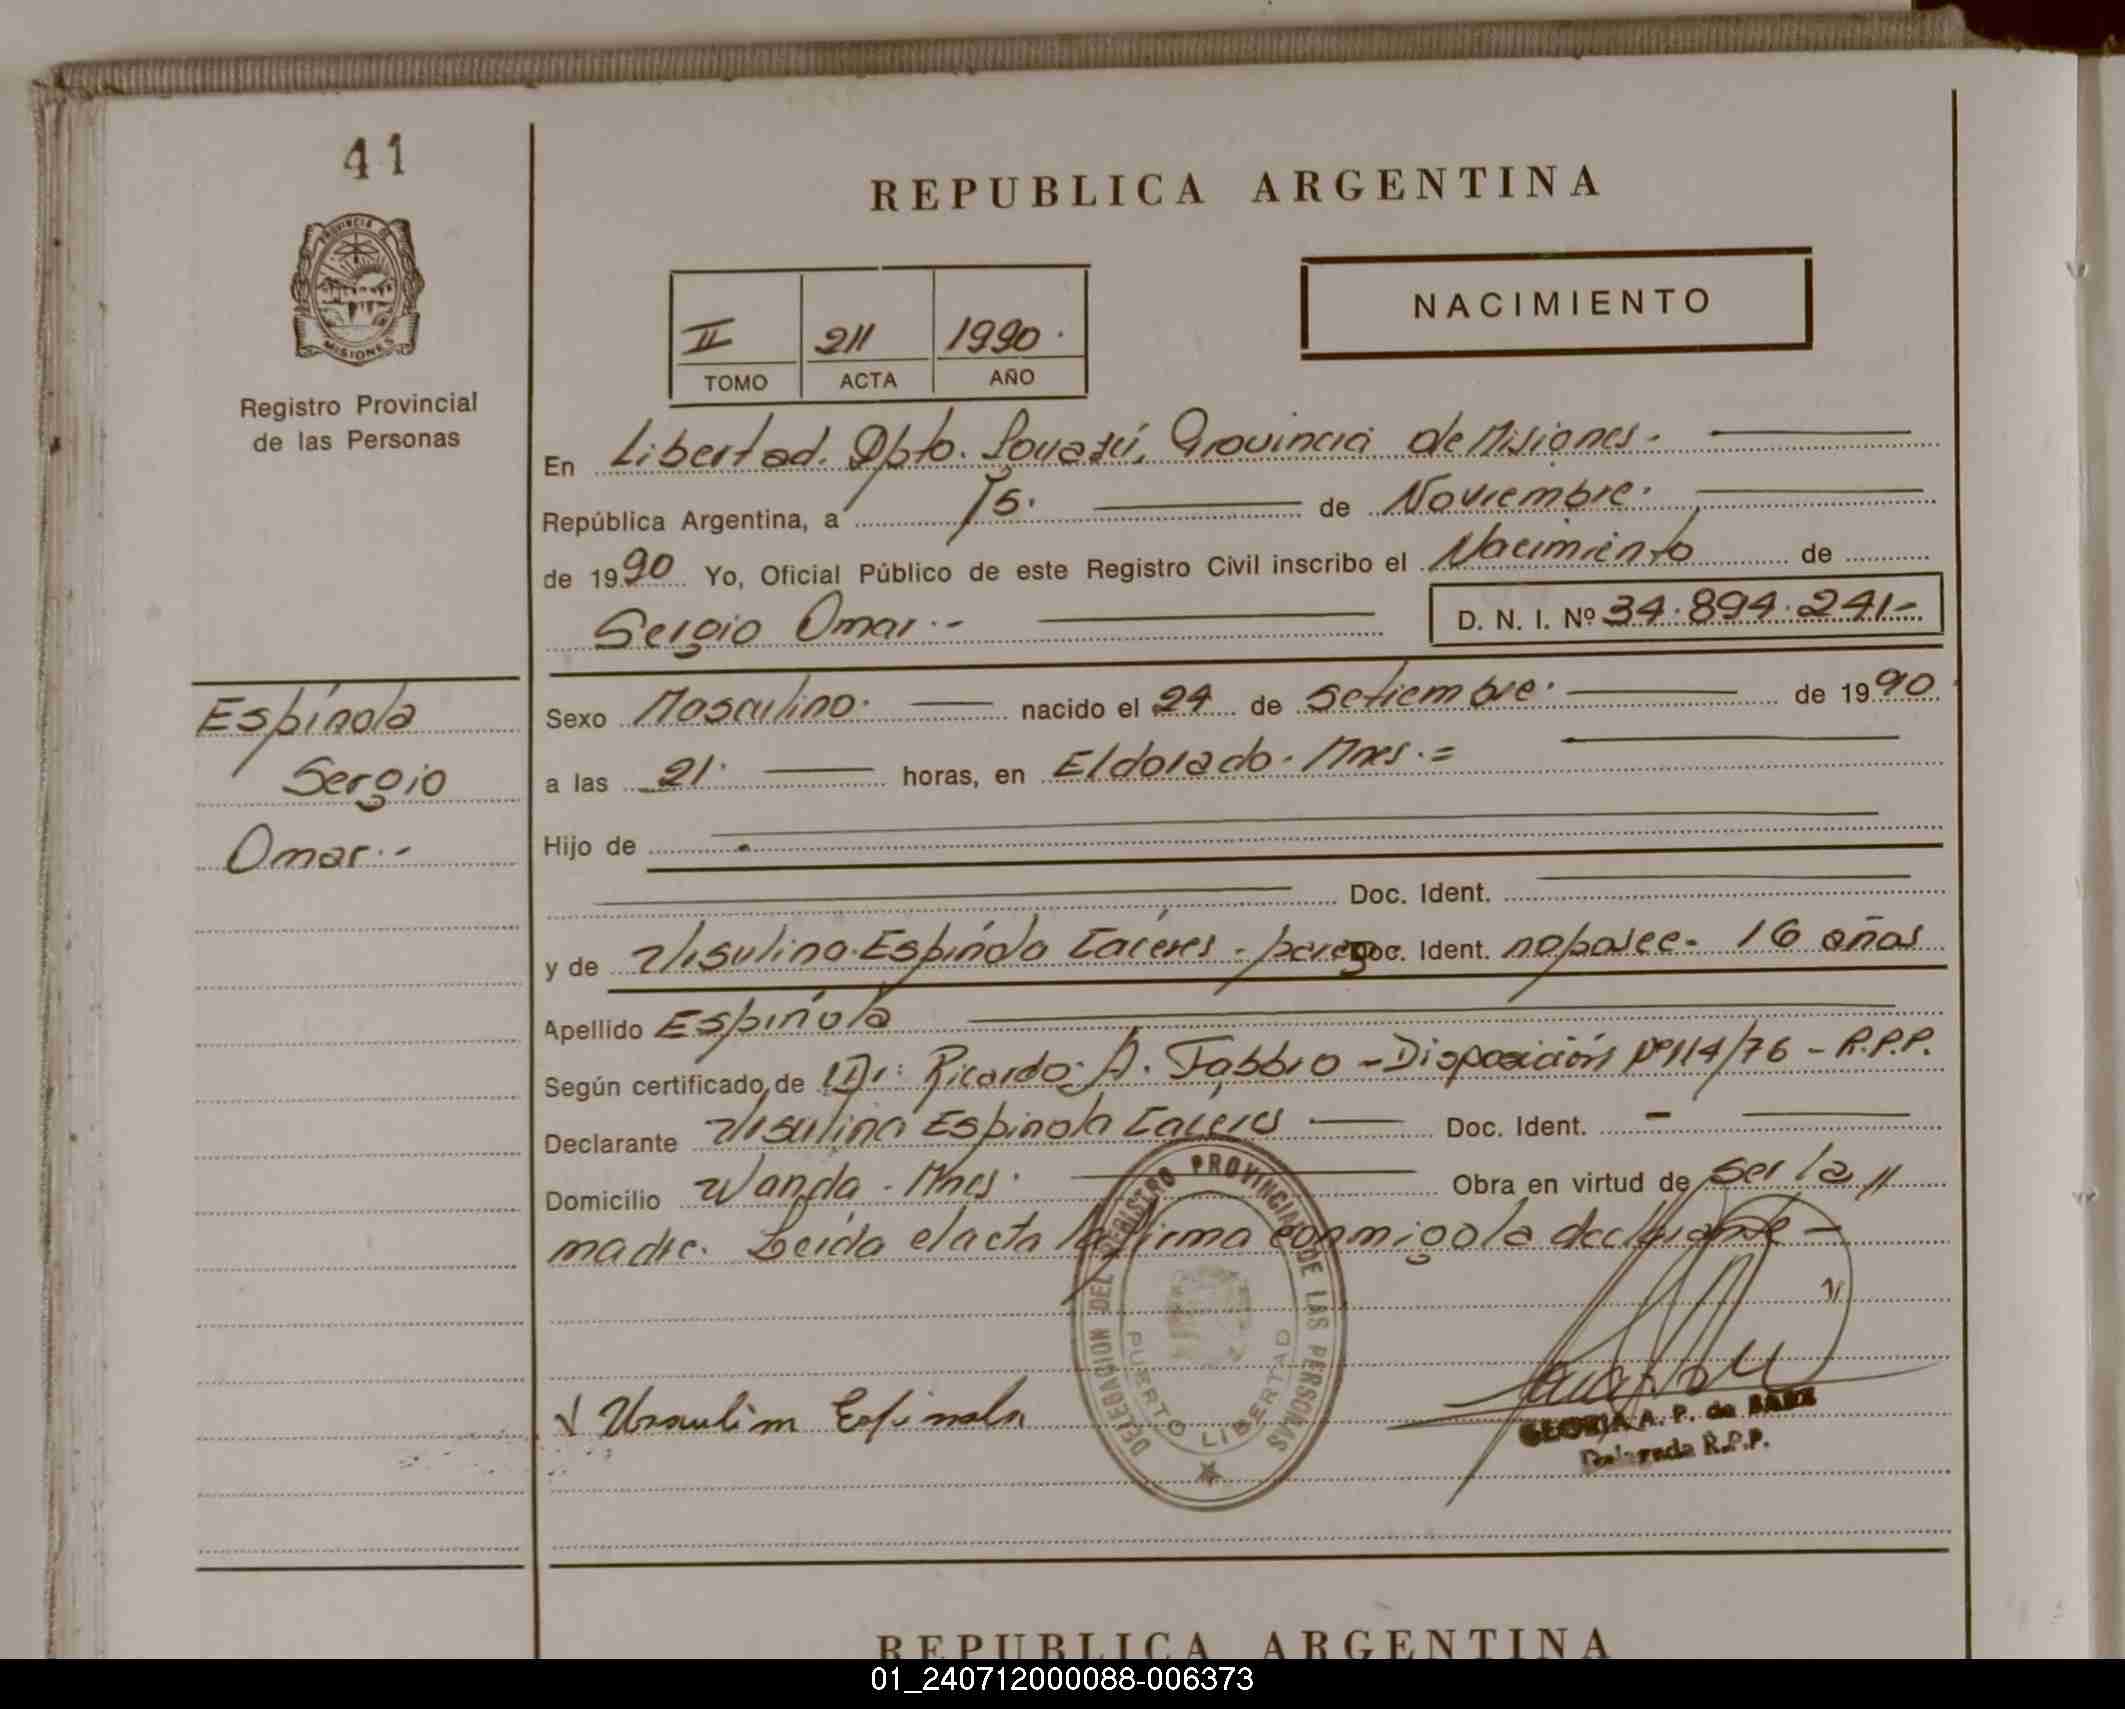 41
REPUBLICA ARGENTINA
PROVINCIA DE
MISIONES
Registro Provincial
de las Personas
NACIMIENTO
II 211 1990.
TOMO ACTA AÑO
En Libertad. Dpto. Iguazú, Provincia de Misiones.-
República Argentina, a 15. de Noviembre.
de 1990 Yo, Oficial Público de este Registro Civil inscribo el Nacimiento de
Sergio Omar.- D. N. I. Nº 34.894.241-
Espínola
Sergio
Omar.-
Sexo Masculino. nacido el 24 de Setiembre. de 1990.
a las 21. horas, en Eldorado. Mnes.=
Hijo de
Doc. Ident.
y de Ursulina Espínola Cáceres - parag Doc. Ident. no posee. 16 años
Apellido Espínola
Según certificado de Dr. Ricardo A. Fabbro - Disposición Nº 114/76 - R.P.P.
Declarante Ursulina Espinola Caceres Doc. Ident. -
Domicilio Wanda - Mnes. Obra en virtud de ser la //
madre. Leída el acta la firma conmigo la declarante -
DELEGACION DEL REGISTRO PROVINCIAL DE LAS PERSONAS
PUERTO LIBERTAD
Ursulina Espinola
GLORIA A. P. de BAEZ
Delegada R.P.P.
REPUBLICA ARGENTINA
01_240712000088-006373